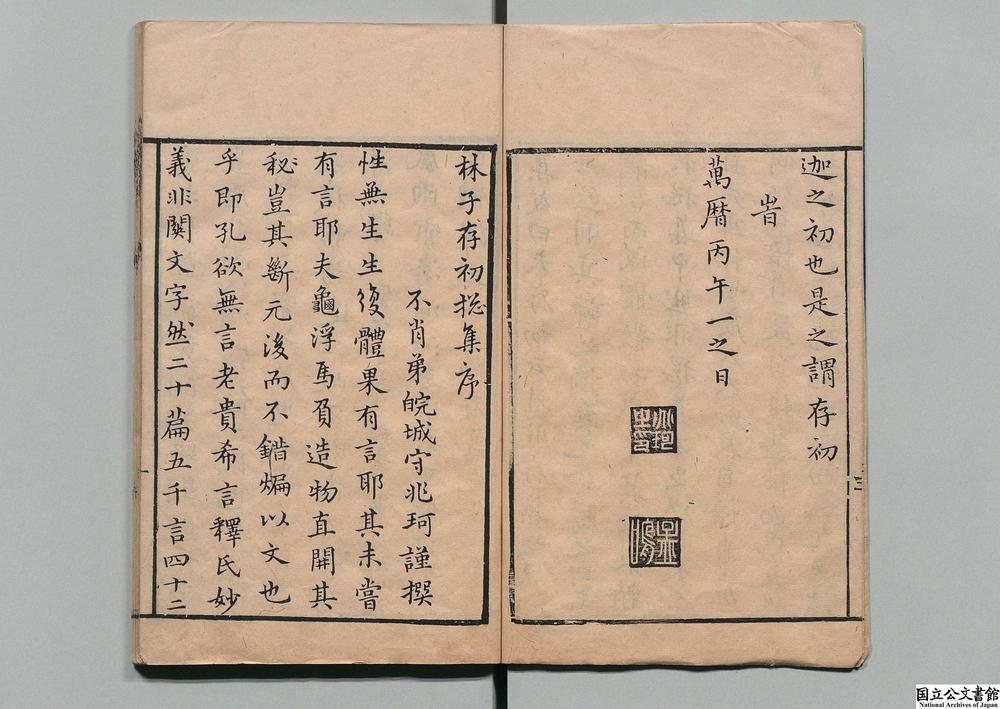 迦之初也是之謂存初
旹
萬曆丙午一之日
林子存初揔集序
不肖弟皖城守兆珂謹撰
性無生生復體果有言耶其未嘗
有言耶夫龜浮馬負造物直開其
秘豈其斷元後而不錯煸以文也
乎即孔欲無言老貴希言釋氏妙
義非關文字然二十篇五千言四十二
国立公文書館
National Archives of Japan